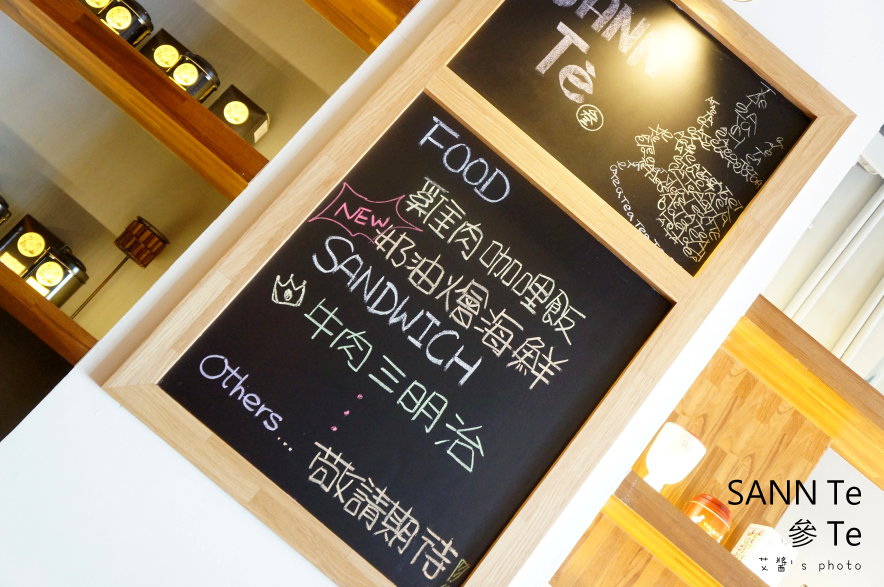 SANN
Té
參
FOOD
雞肉咖哩飯
NEW
奶油燴海鮮
SANDWICH
牛肉三明治
Others...
敬請期待!
SANN Te
參 Te
艾醬's photo